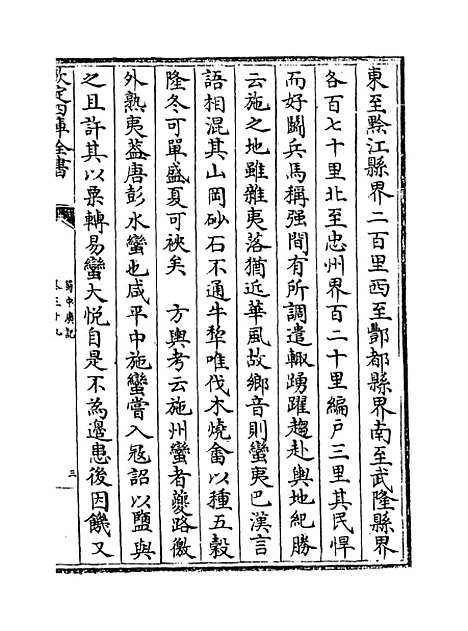 東至黔江縣界二百里西至酆都縣界南至武隆縣界
各百七十里北至忠州界百二十里編戶三里其民悍
而好鬭兵馬稱强間有所調遣輙踴躍趨赴輿地紀勝
云施之地雖雜夷落猶近華風故鄉音則蠻夷巴漢言
語相混其山岡砂石不通牛犂唯伐木燒畬以種五穀
隆冬可單盛夏可裌矣　方輿考云施州蠻者夔路徼
外熟夷葢唐彭水蠻也咸平中施蠻嘗入冦詔以鹽與
之且許其以粟轉易蠻大悅自是不為邊患後因饑又
欽定四庫全書
蜀中廣記
卷三十九
三